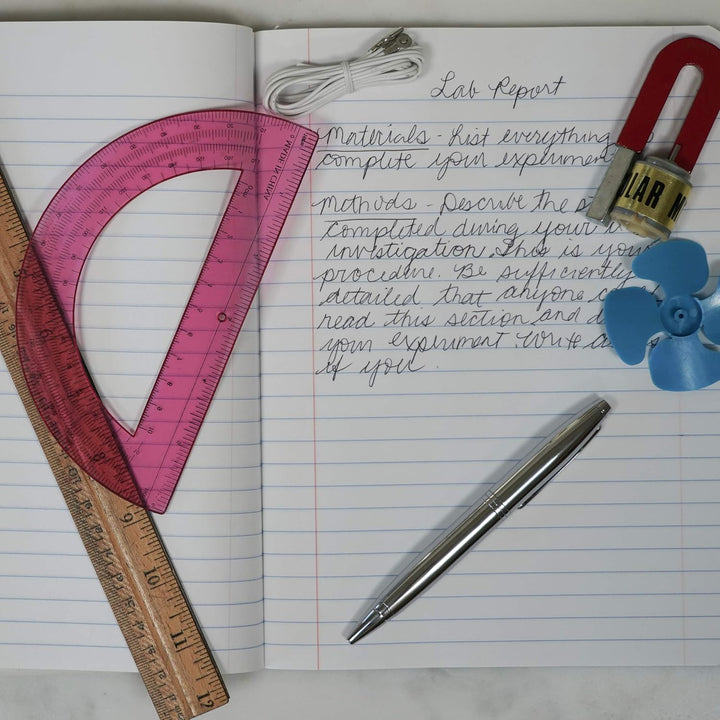 Lab Report
Materials - List everything
complete your experiment
Methods - Describe the s
completed during your in
investigation. This is your
procedure. Be sufficiently
detailed that anyone co
read this section and d
your experiment Write as
if you.
MADE IN CHINA
OLAR M
9
10
11
12